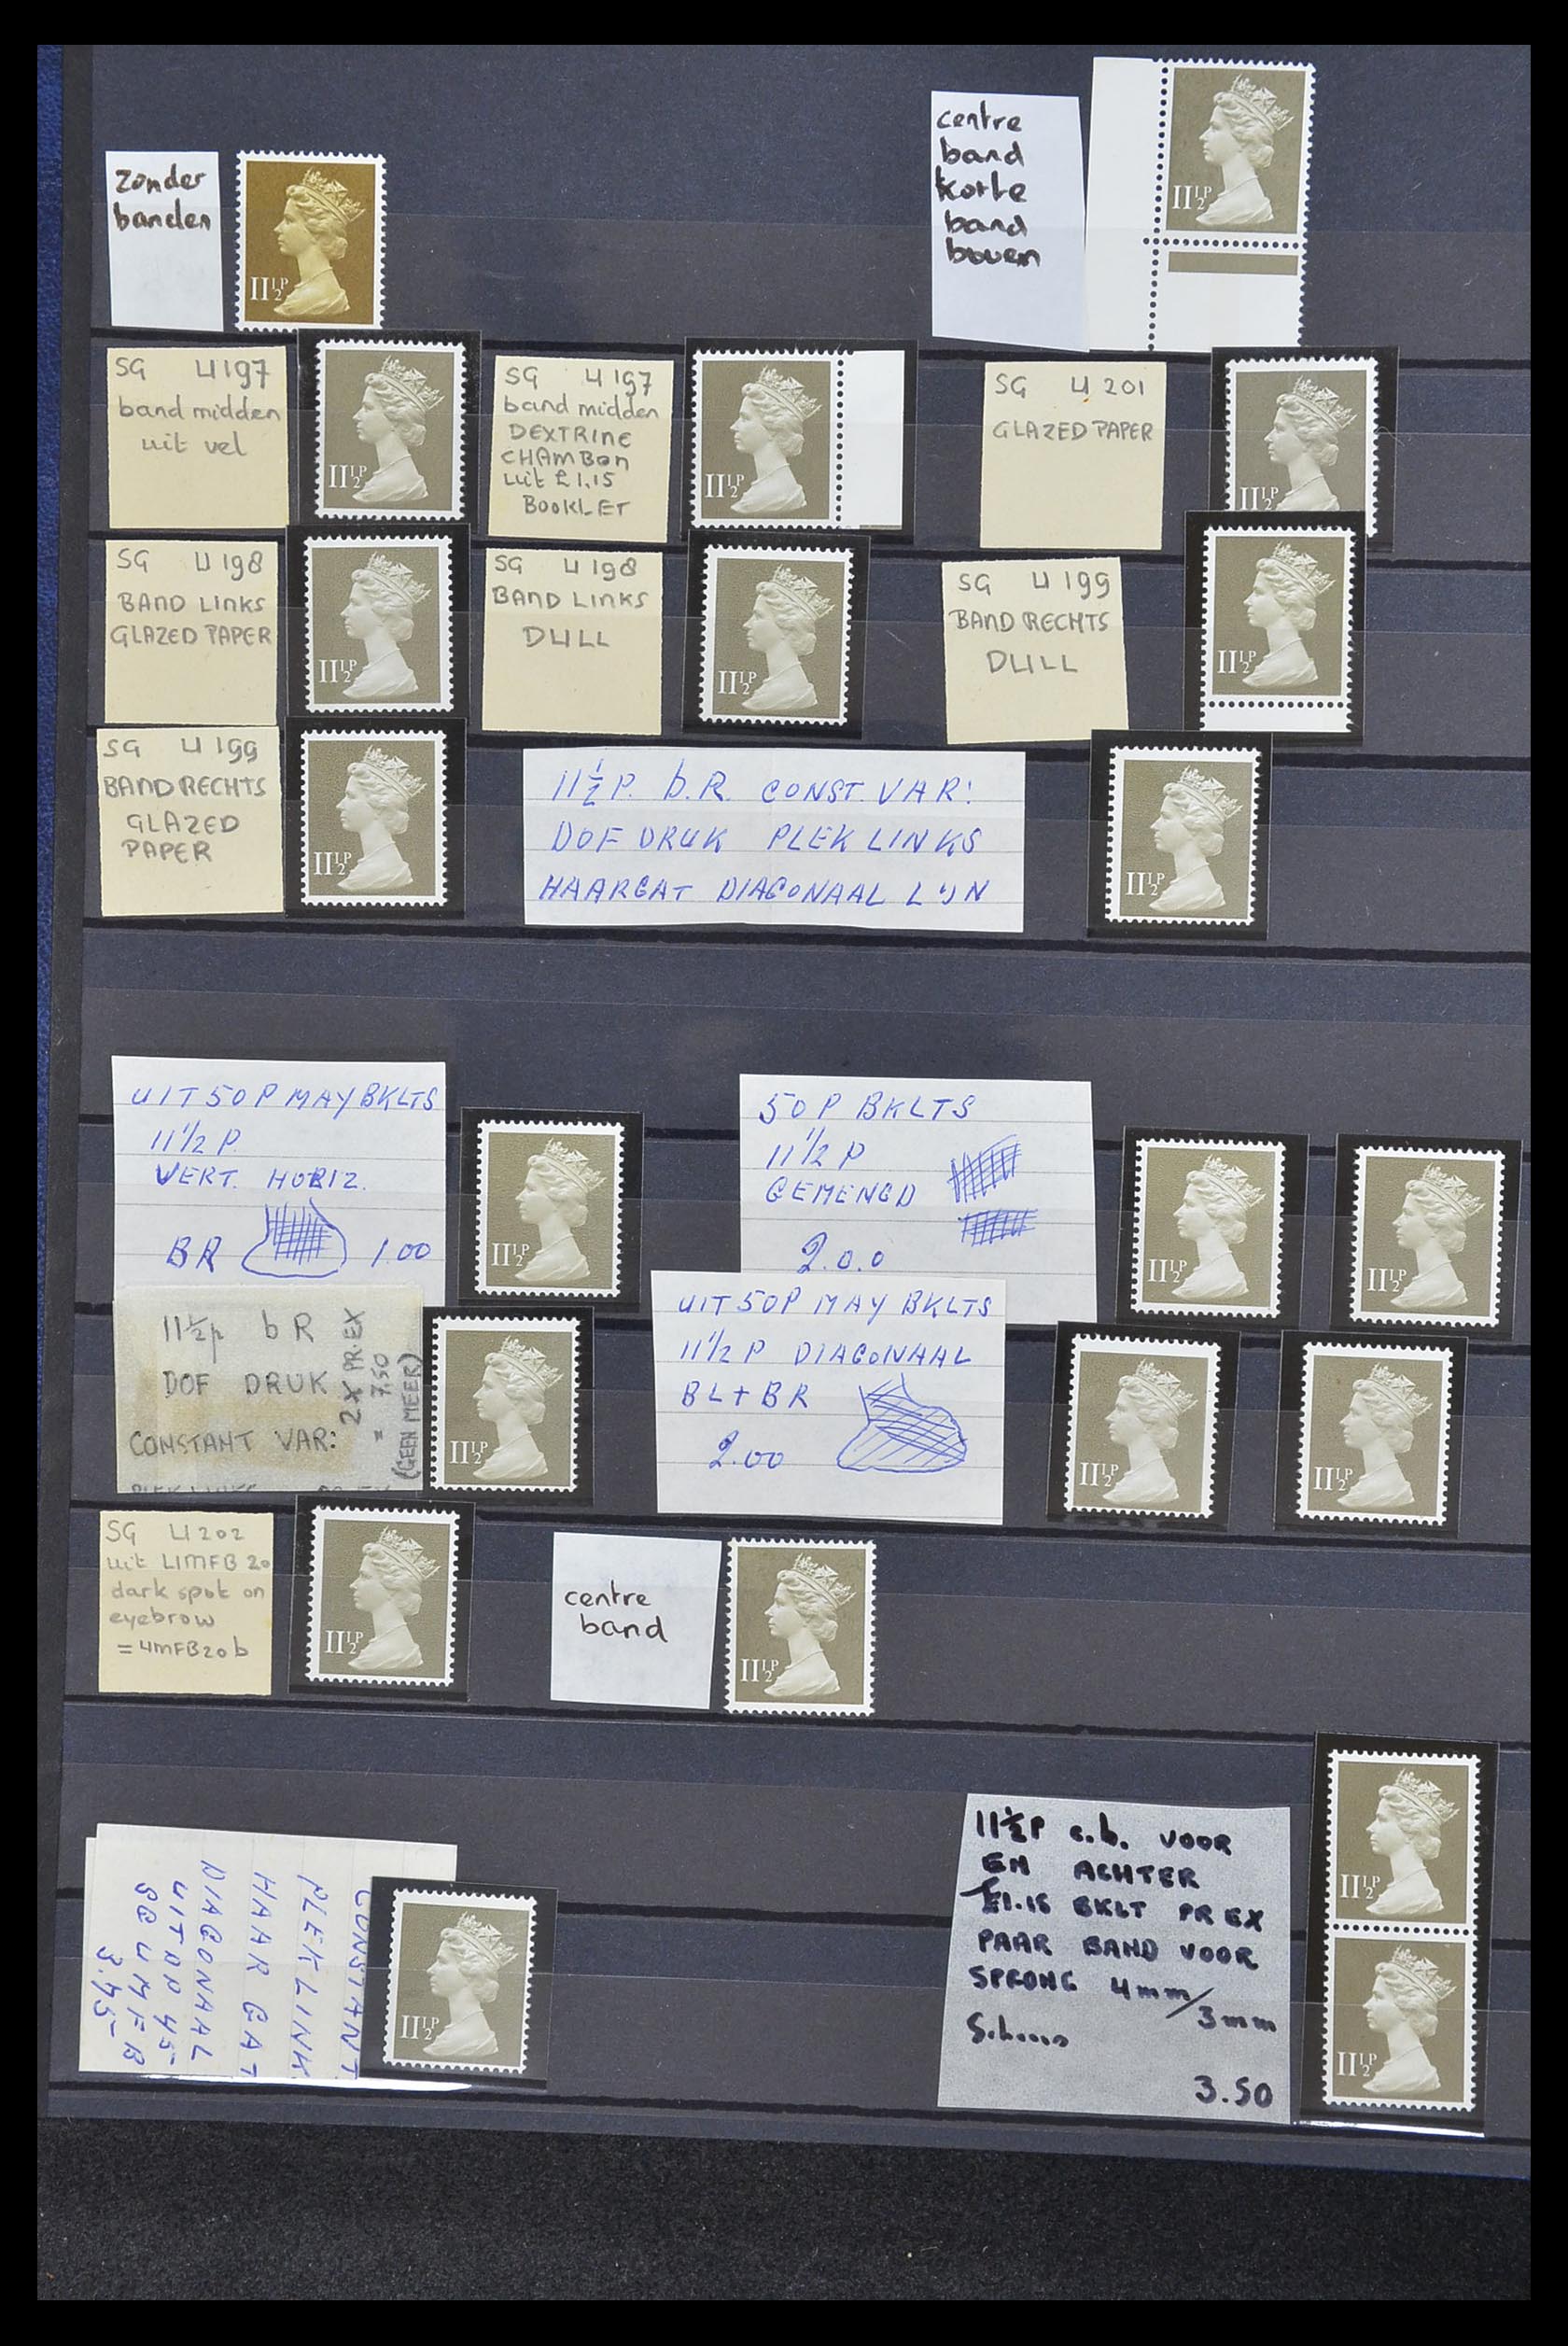 Zonder
banden
11½P
centre
band
korte
band
boven
11½P
SG U197
band midden
uit vel
11½P
SG U197
band midden
DEXTRINE
CHAMBON
uit £1,15
BOOKLET
11½P
SG U201
GLAZED PAPER
11½P
SG U198
BAND LINKS
GLAZED PAPER
11½P
SG U198
BAND LINKS
DULL
11½P
SG U199
BAND RECHTS
DULL
11½P
SG U199
BAND RECHTS
GLAZED
PAPER
11½P
11½P. b.R. CONST. VAR:
DOF DRUK PLEK LINKS
HAARGAT DIAGONAAL LIJN
11½P
UIT 50P MAY BKLTS
11½ P.
VERT. HORIZ.
BR 1.00
11½P
50P BKLTS
11½ P
GEMENGD
2.0.0
11½P
11½P
11½p bR
DOF DRUK
CONSTANT VAR:
2X PR.EX
= 7.50
(GEEN MEER)
11½P
UIT 50P MAY BKLTS
11½ P DIAGONAAL
BL + BR
2.00
11½P
11½P
SG U202
uit UMFB 20
dark spot on
eyebrow
= UMFB20b
11½P
centre
band
11½P
CONSTANT
PLEK LINK
HAAR GAT
DIAGONAAL
UIT DP 45
SG UMFB
3.45-
11½P
11½P c.b. VOOR
EN ACHTER
£1.15 BKLT PR EX
PAAR BAND VOOR
SPRONG 4mm/3mm
3.50
11½P
11½P